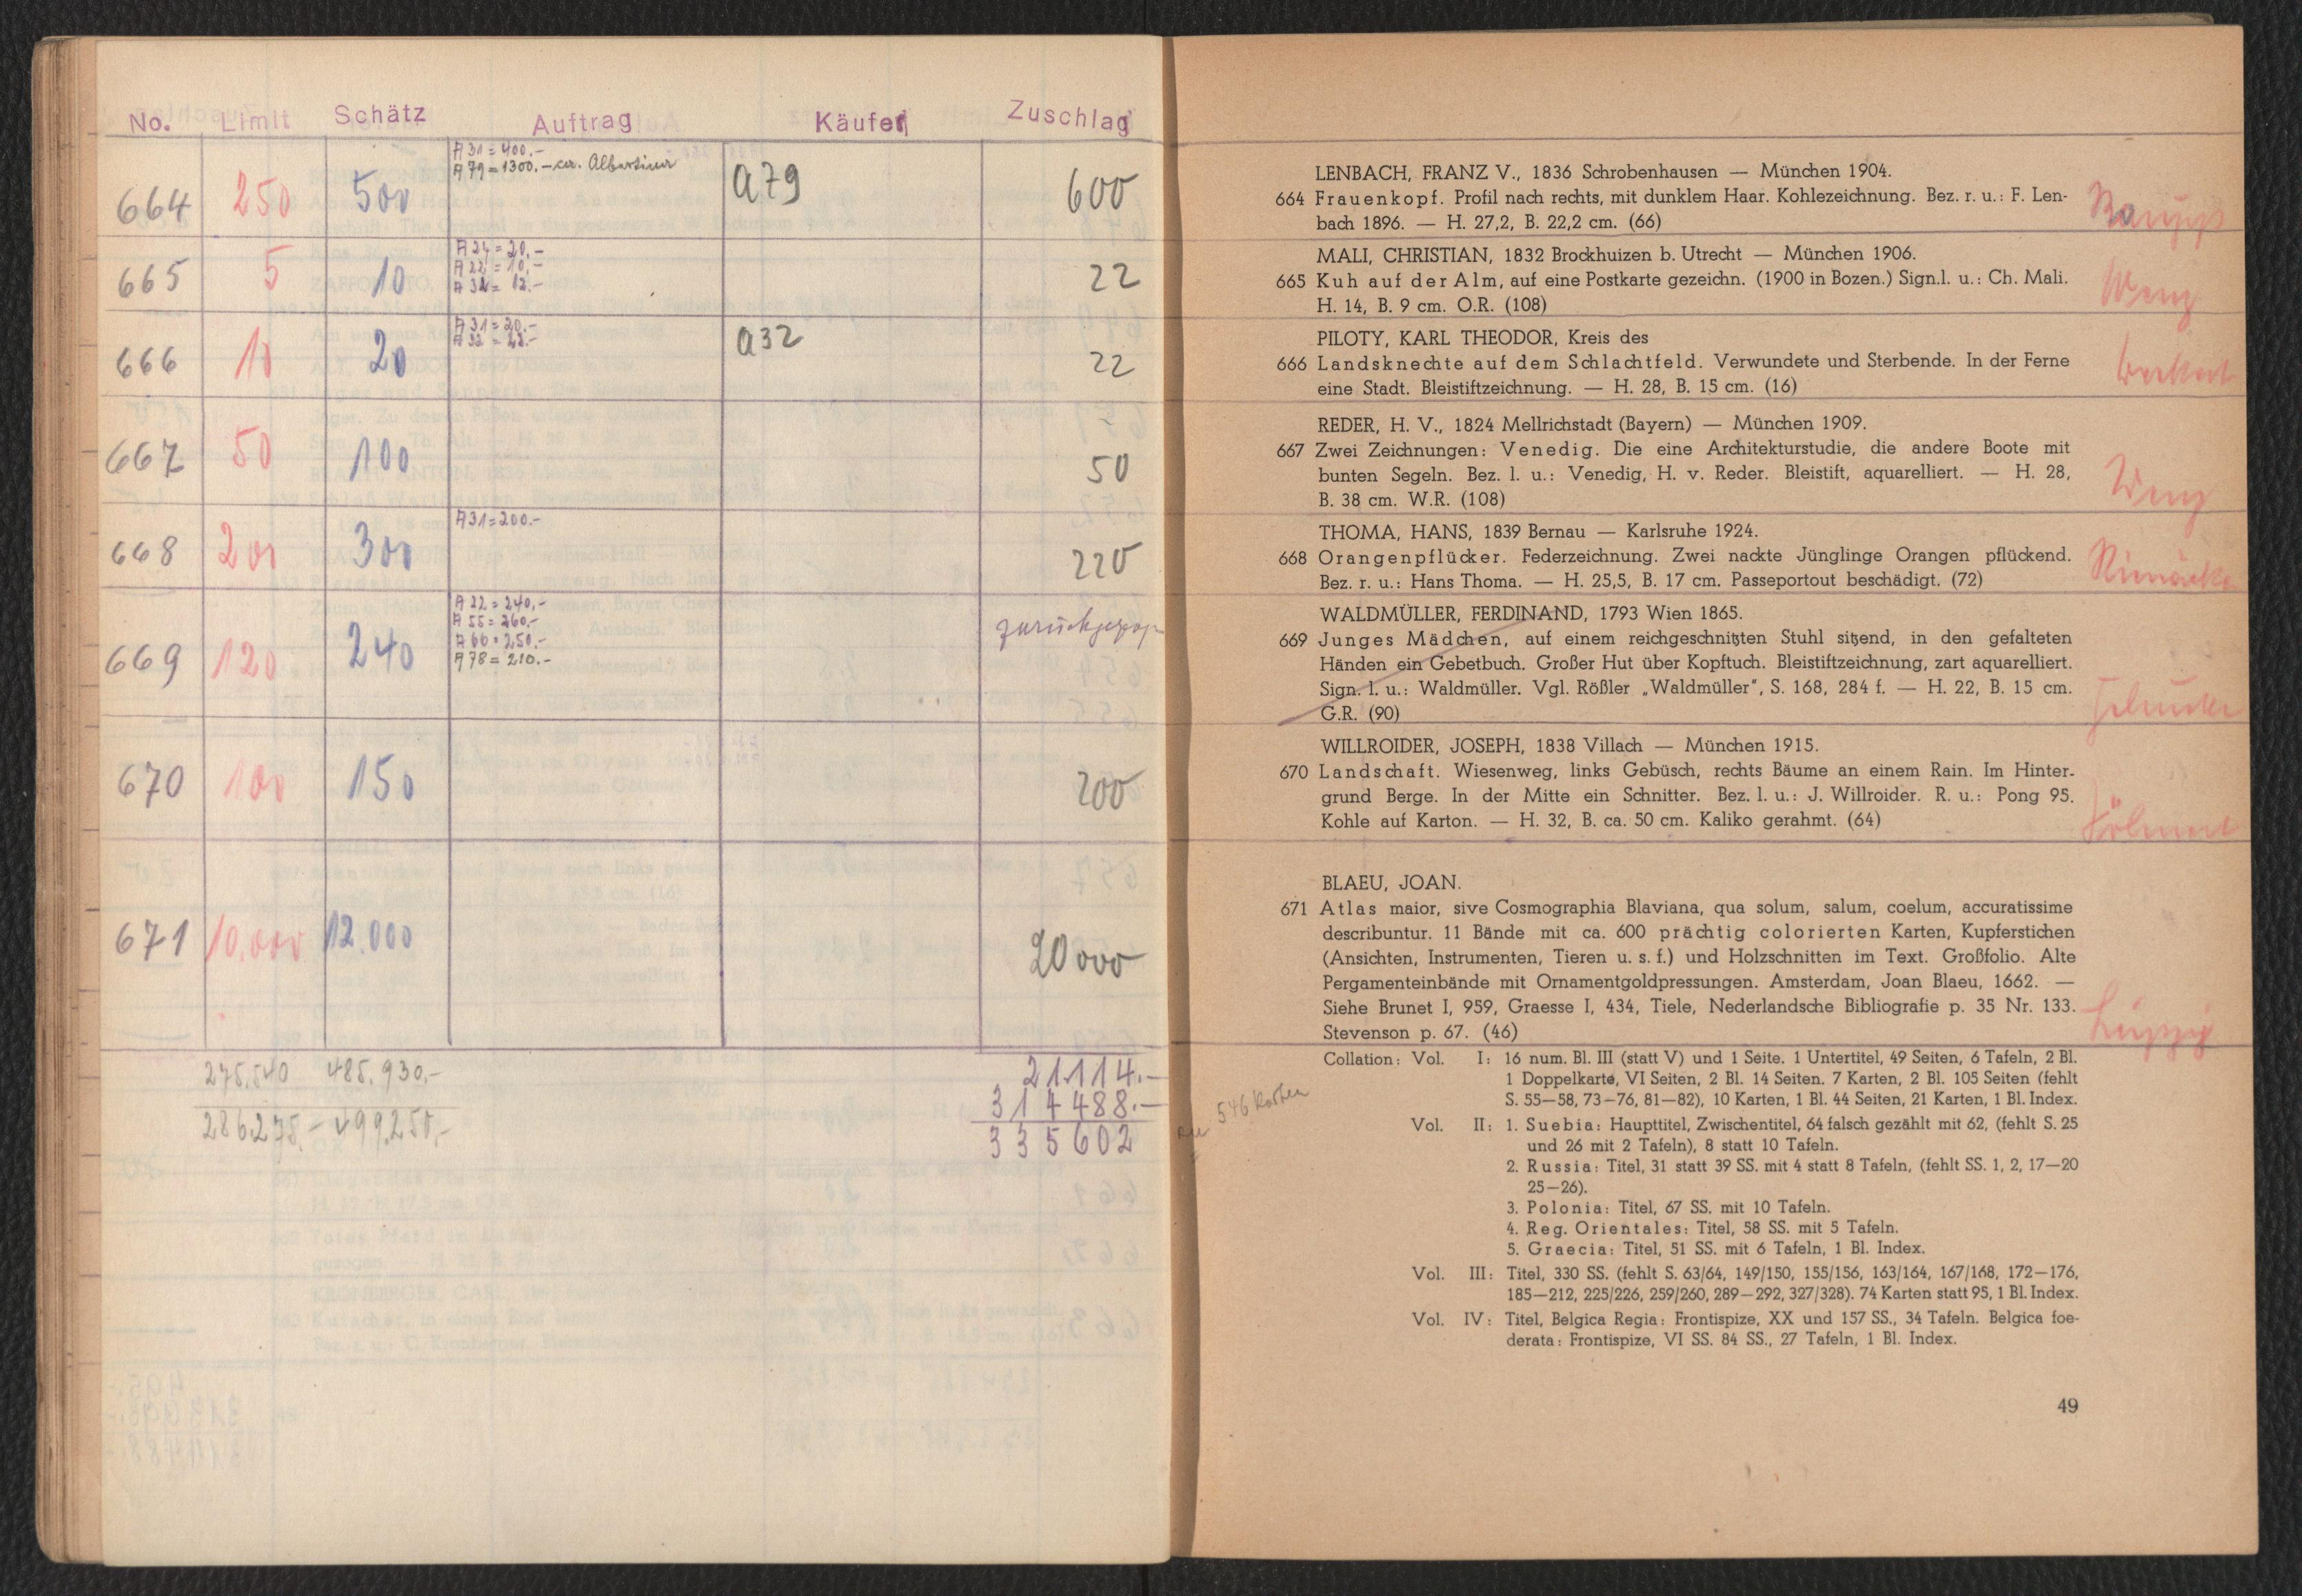 No. Limit Schätz Auftrag Käufer Zuschlag
A 31 = 400.-
A 79 = 1300.-
664 250 500 a79 600
A 24 = 20.-
A 22 = 10.-
665 5 10 22
A 31 = 20.-
666 10 20 a32 22
667 50 100 50
A 31 = 200.-
668 200 300 220
A 22 = 240.-
A 55 = 260.-
A 66 = 250.-
A 78 = 210.-
669 120 240
670 100 150 200
671 10.000 12.000 20000
275.540 485.930.- 21114.-
314488.-
286.275.- 499.250.- 335602
LENBACH, FRANZ V., 1836 Schrobenhausen — München 1904.
664 Frauenkopf. Profil nach rechts, mit dunklem Haar. Kohlezeichnung. Bez. r. u.: F. Len-
bach 1896. — H. 27,2, B. 22,2 cm. (66)
MALI, CHRISTIAN, 1832 Brockhuizen b. Utrecht — München 1906.
665 Kuh auf der Alm, auf eine Postkarte gezeichn. (1900 in Bozen.) Sign.l. u.: Ch. Mali.
H. 14, B. 9 cm. O.R. (108)
Weng
PILOTY, KARL THEODOR, Kreis des
666 Landsknechte auf dem Schlachtfeld. Verwundete und Sterbende. In der Ferne
eine Stadt. Bleistiftzeichnung. — H. 28, B. 15 cm. (16)
REDER, H. V., 1824 Mellrichstadt (Bayern) — München 1909.
667 Zwei Zeichnungen: Venedig. Die eine Architekturstudie, die andere Boote mit
bunten Segeln. Bez. l. u.: Venedig, H. v. Reder. Bleistift, aquarelliert. — H. 28,
B. 38 cm. W.R. (108)
Weng
THOMA, HANS, 1839 Bernau — Karlsruhe 1924.
668 Orangenpflücker. Federzeichnung. Zwei nackte Jünglinge Orangen pflückend.
Bez. r. u.: Hans Thoma. — H. 25,5, B. 17 cm. Passeportout beschädigt. (72)
WALDMÜLLER, FERDINAND, 1793 Wien 1865.
669 Junges Mädchen, auf einem reichgeschnitzten Stuhl sitzend, in den gefalteten
Händen ein Gebetbuch. Großer Hut über Kopftuch. Bleistiftzeichnung, zart aquarelliert.
Sign. l. u.: Waldmüller. Vgl. Rößler „Waldmüller", S. 168, 284 f. — H. 22, B. 15 cm.
G.R. (90)
WILLROIDER, JOSEPH, 1838 Villach — München 1915.
670 Landschaft. Wiesenweg, links Gebüsch, rechts Bäume an einem Rain. Im Hinter-
grund Berge. In der Mitte ein Schnitter. Bez. l. u.: J. Willroider. R. u.: Pong 95.
Kohle auf Karton. — H. 32, B. ca. 50 cm. Kaliko gerahmt. (64)
BLAEU, JOAN.
671 Atlas maior, sive Cosmographia Blaviana, qua solum, salum, coelum, accuratissime
describuntur. 11 Bände mit ca. 600 prächtig colorierten Karten, Kupferstichen
(Ansichten, Instrumenten, Tieren u. s. f.) und Holzschnitten im Text. Großfolio. Alte
Pergamenteinbände mit Ornamentgoldpressungen. Amsterdam, Joan Blaeu, 1662. —
Siehe Brunet I, 959, Graesse I, 434, Tiele, Nederlandsche Bibliografie p. 35 Nr. 133.
Stevenson p. 67. (46)
Leipzig
Collation: Vol. I: 16 num. Bl. III (statt V) und 1 Seite. 1 Untertitel, 49 Seiten, 6 Tafeln, 2 Bl.
1 Doppelkarte, VI Seiten, 2 Bl. 14 Seiten. 7 Karten, 2 Bl. 105 Seiten (fehlt
S. 55—58, 73—76, 81—82), 10 Karten, 1 Bl. 44 Seiten, 21 Karten, 1 Bl. Index.
546 Karten
Vol. II: 1. Suebia: Haupttitel, Zwischentitel, 64 falsch gezählt mit 62, (fehlt S. 25
und 26 mit 2 Tafeln), 8 statt 10 Tafeln.
2. Russia: Titel, 31 statt 39 SS. mit 4 statt 8 Tafeln, (fehlt SS. 1, 2, 17—20
25—26).
3. Polonia: Titel, 67 SS. mit 10 Tafeln.
4. Reg. Orientales: Titel, 58 SS. mit 5 Tafeln.
5. Graecia: Titel, 51 SS. mit 6 Tafeln, 1 Bl. Index.
Vol. III: Titel, 330 SS. (fehlt S. 63/64, 149/150, 155/156, 163/164, 167/168, 172—176,
185—212, 225/226, 259/260, 289—292, 327/328). 74 Karten statt 95, 1 Bl. Index.
Vol. IV: Titel, Belgica Regia: Frontispize, XX und 157 SS., 34 Tafeln. Belgica foe-
derata: Frontispize, VI SS. 84 SS., 27 Tafeln, 1 Bl. Index.
49